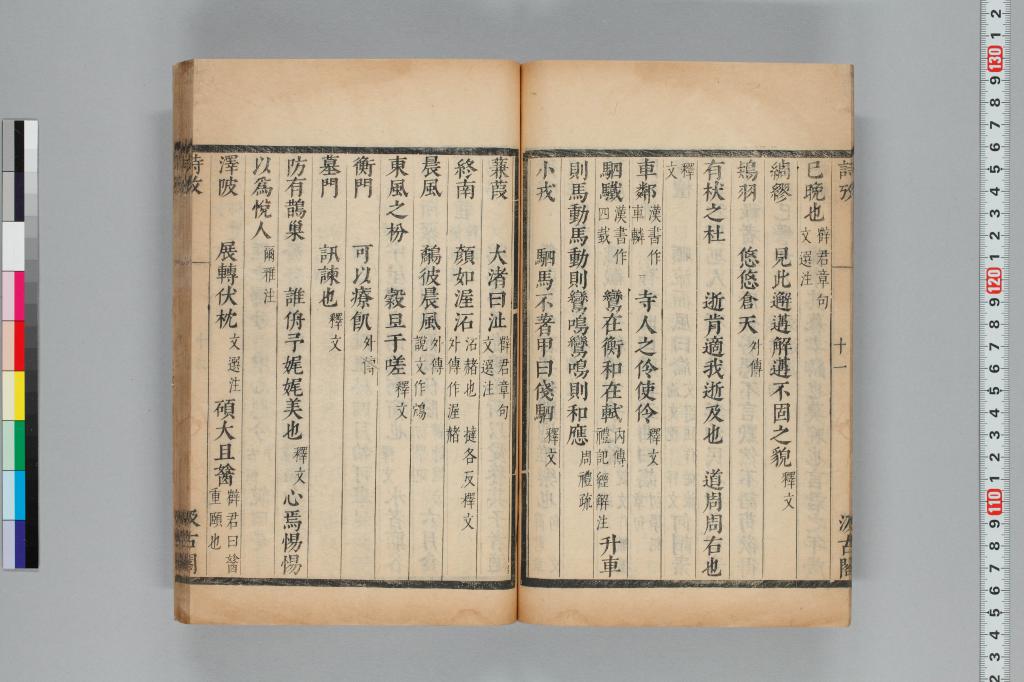 詩攷
十一
汲古閣
已晚也薛君章句文選注
綢繆 見此邂逅解遘不固之貌釋文
鴇羽 悠悠倉天外傳
有杕之杜 逝肯適我逝及也 道周周右也
釋文
車鄰漢書作車轔 寺人之伶使伶釋文
駟驖漢書作四臷 鸞在衡和在軾內傳禮記經解注升車
則馬動馬動則鸞鳴鸞鳴則和應周禮疏
小戎 駟馬不著甲曰俴駟釋文
蒹葭 大渚曰沚薛君章句文選注
終南 顏如渥沰沰赭也外傳作渥赭 撻各反釋文
晨風 鷸彼晨風外傳說文作鴥
東風之枌 穀旦于嗟釋文
衡門 可以療飢外傳
墓門 訊諫也釋文
防有鵲巢 誰侜予娓娓美也釋文心焉惕惕
以爲悅人爾雅注
澤陂 展轉伏枕文選注 碩大且㜝薛君曰㜝重頤也
詩攷
汲古閣